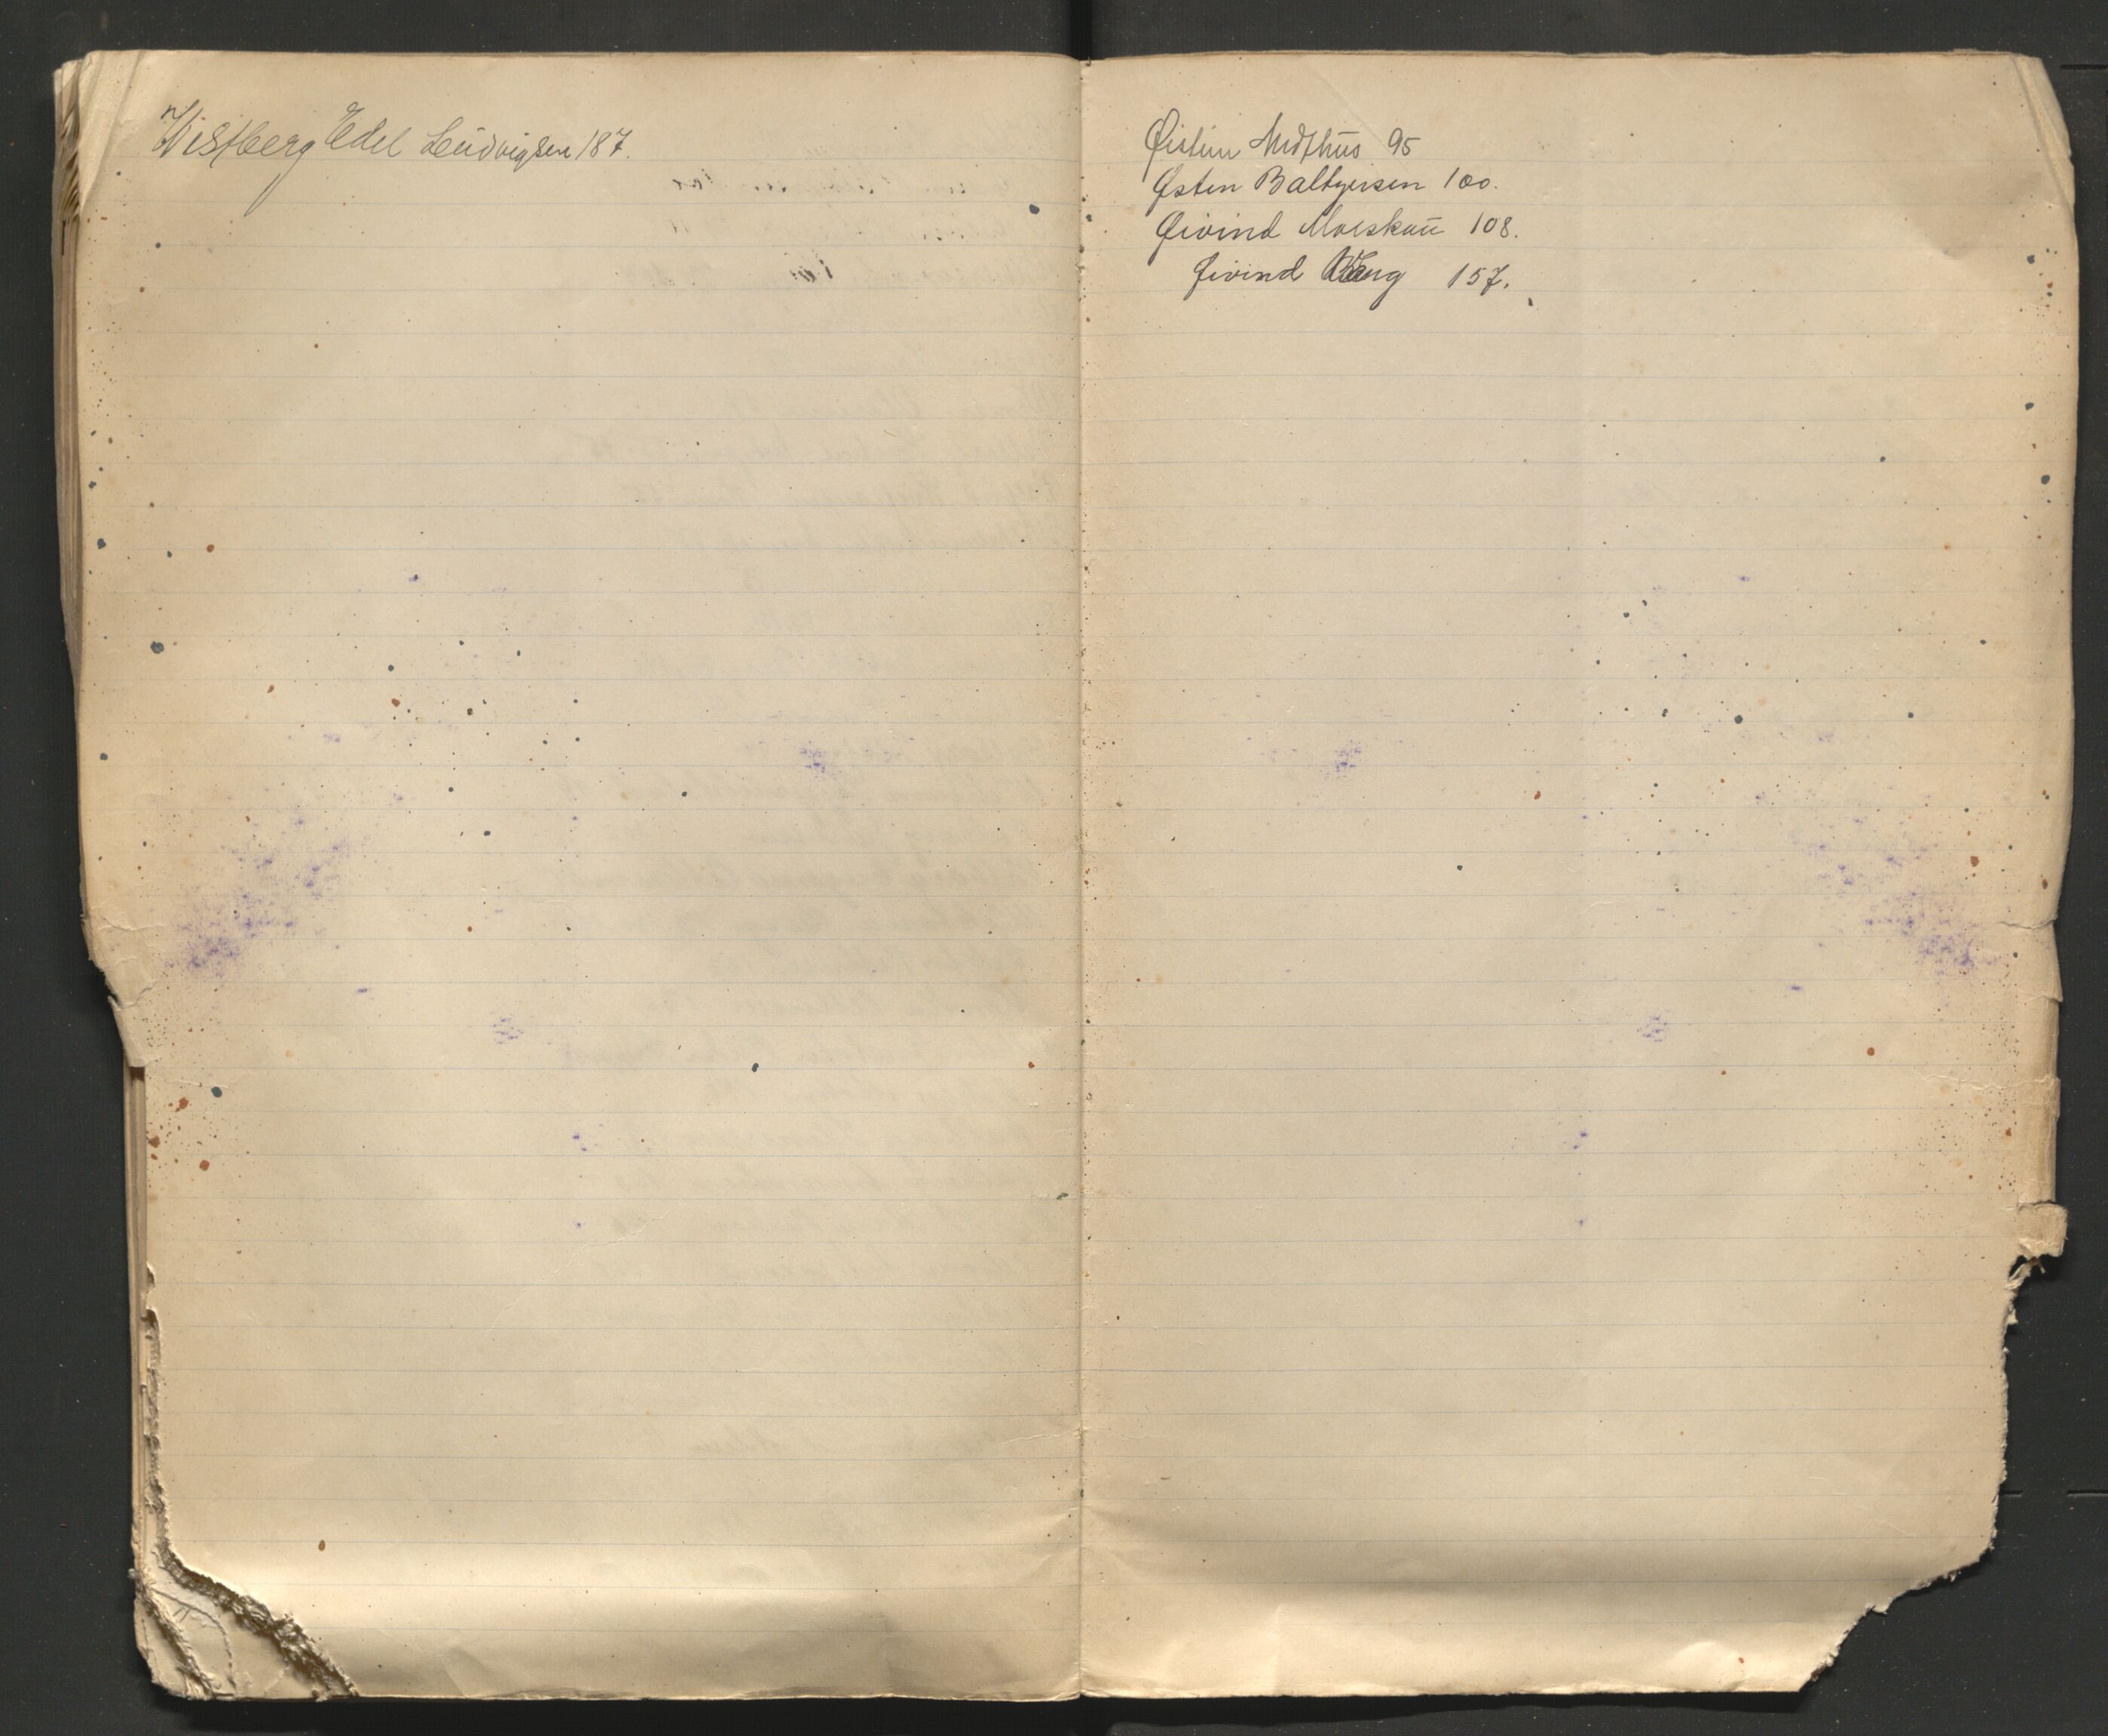 Westberg Edel Ludvigsen 187.
Øistein Midthus 95
Østen Baltzersen 100.
Øivind Moeskau 108.
Øivind 157.